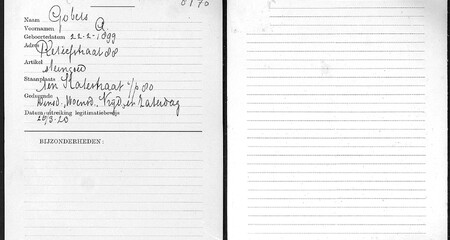 0170
Naam Gobets
Voornamen A
Geboortedatum 22-2-1899
Adres Retiefstraat 88
Artikel steengoed
Staanplaats Ten Katestraat t/o 80
Gedurende Dinsd., Woensd., Vrijd. en Zaterdag
Datum uitreiking legitimatiebewijs
20/3-20
BIJZONDERHEDEN: